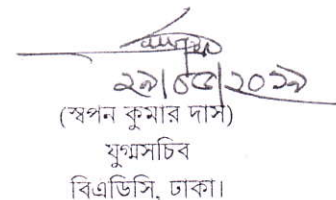 ২৯|০৫|২০১৯
(স্বপন কুমার দাস)
যুগ্মসচিব
বিএডিসি, ঢাকা।